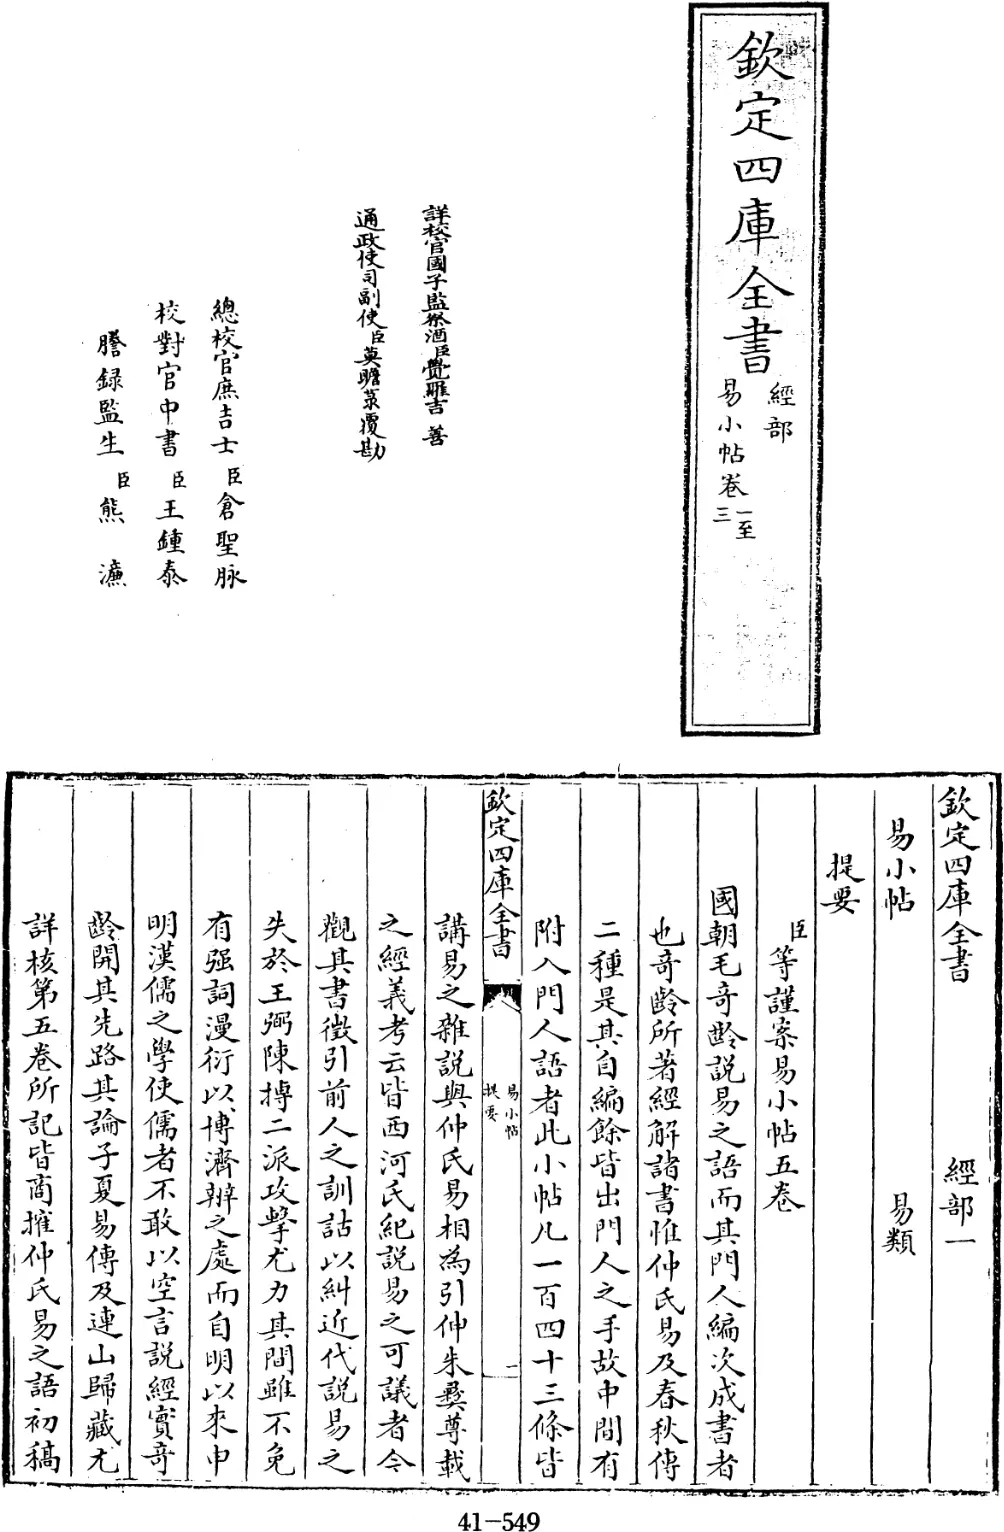 欽定四庫全書
經部
易小帖卷一至三
詳校官國子監祭酒臣覺羅吉善
通政使司副使臣莫瞻菉覆勘
總校官庶吉士臣倉聖脉
校對官中書臣王鍾泰
謄録監生臣熊濂
欽定四庫全書 經部一
易小帖 易類
提要
臣等謹案易小帖五卷
國朝毛奇齡說易之語而其門人編次成書者
也奇齡所著經解諸書惟仲氏易及春秋傳
二種是其自編餘皆出門人之手故中間有
附入門人語者此小帖凡一百四十三條皆
欽定四庫全書
易小帖
提要
一
講易之雜說與仲氏易相為引伸朱彛尊載
之經義考云皆西河氏紀說易之可議者今
觀其書徵引前人之訓詁以糾近代說易之
失於王弼陳摶二派攻擊尤力其間雖不免
有强詞漫衍以博濟辨之處而自明以來申
明漢儒之學使儒者不敢以空言說經實奇
齡開其先路其論子夏易傳及連山歸藏尤
詳核第五卷所記皆商搉仲氏易之語初稿
41-549